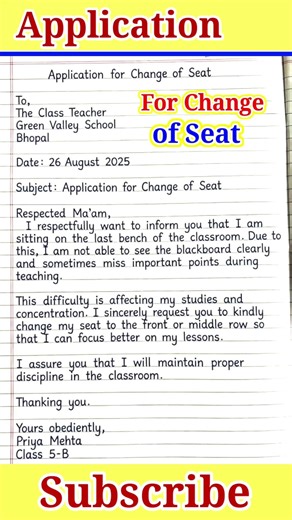 Application
Application for Change of Seat
To,
The Class Teacher
Green Valley School
Bhopal
For Change
of Seat
Date: 26 August 2025
Subject: Application for Change of Seat
Respected Ma'am,
I respectfully want to inform you that I am
sitting on the last bench of the classroom. Due to
this, I am not able to see the blackboard clearly
and sometimes miss important points during
teaching.
This difficulty is affecting my studies and
concentration. I sincerely request you to kindly
change my seat to the front or middle row so
that I can focus better on my lessons.
I assure you that I will maintain proper
discipline in the classroom.
Thanking you.
Yours obediently,
Priya Mehta
Class 5-B
Subscribe